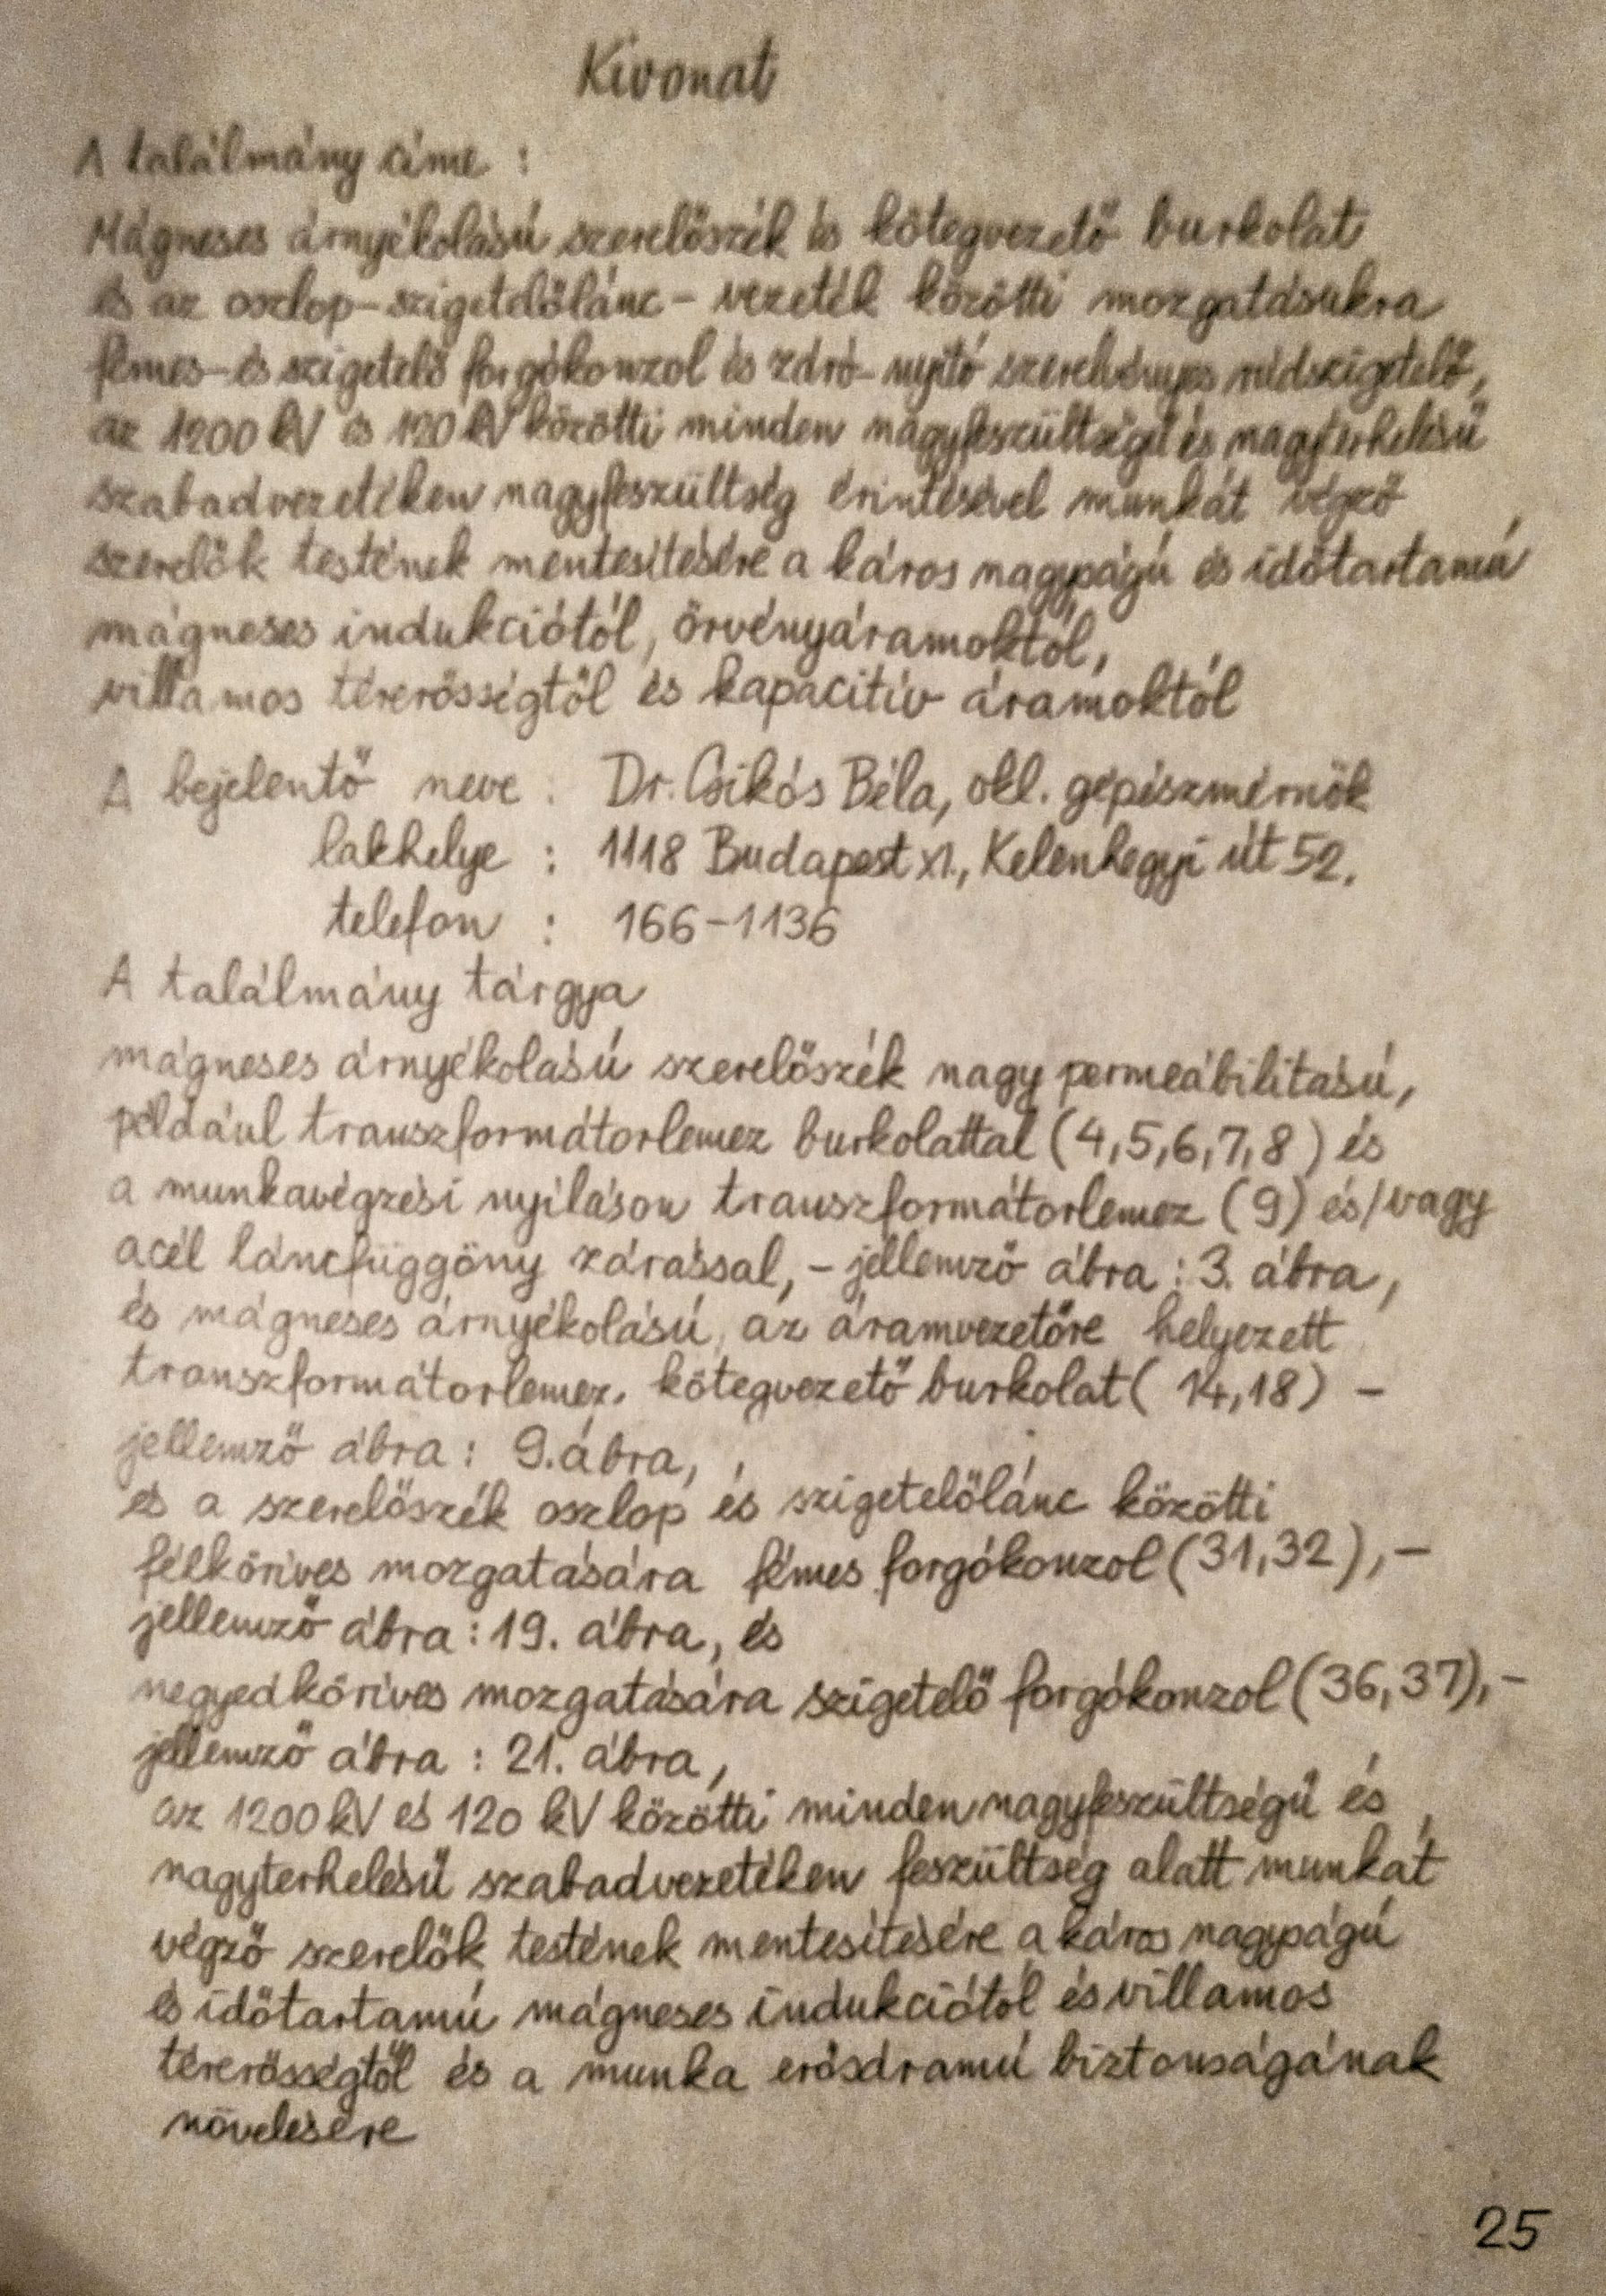 Kivonat
A találmány címe :
Mágneses árnyékolású szerelőszék és kötegvezető burkolat
és az oszlop-szigetelőlánc- vezeték közötti mozgatásukra
fémes-és szigetelő forgókonzol és záró-nyitó szerelvényes rúdszigetelő,
az 1200 kV és 120 kV közötti minden nagyfeszültségű és nagyterhelésű
szabadvezetéken nagyfeszültség érintésével munkát végző
szerelők testének mentesítésére a káros nagyságú és időtartamú
mágneses indukciótól, örvényáramoktól,
villamos térerősségtől és kapacitív áramoktól
A bejelentő neve : Dr. Csikós Béla, okl. gépészmérnök
lakhelye : 1118 Budapest XI., Kelenhegyi út 52.
telefon : 166-1136
A találmány tárgya
mágneses árnyékolású szerelőszék nagy permeábilitású,
például transzformátorlemez burkolattal (4,5,6,7,8) és
a munkavégzési nyíláson transzformátorlemez (9) és/vagy
acél láncfüggöny zárással, - jellemző ábra : 3. ábra,
és mágneses árnyékolású, az áramvezetőre helyezett
transzformátorlemez. kötegvezető burkolat ( 14,18) -
jellemző ábra : 9. ábra,
és a szerelőszék oszlop és szigetelőlánc közötti
félköríves mozgatására fémes forgókonzol (31,32), -
jellemző ábra : 19. ábra, és
negyedköríves mozgatására szigetelő forgókonzol (36,37), -
jellemző ábra : 21. ábra,
az 1200 kV és 120 kV közötti minden nagyfeszültségű és
nagyterhelésű szabadvezetéken feszültség alatt munkát
végző szerelők testének mentesítésére a káros nagyságú
és időtartamú mágneses indukciótól és villamos
térerősségtől és a munka erősáramú biztonságának
növelésére
25